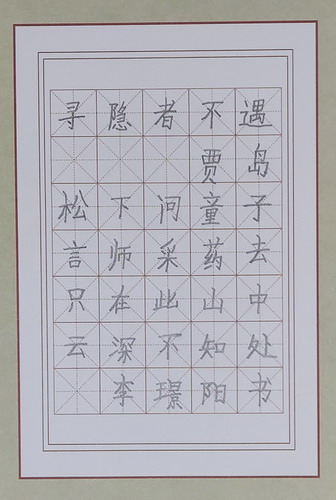 寻隐者不遇
贾岛
松下问童子
言师采药去
只在此山中
云深不知处
李璟阳书